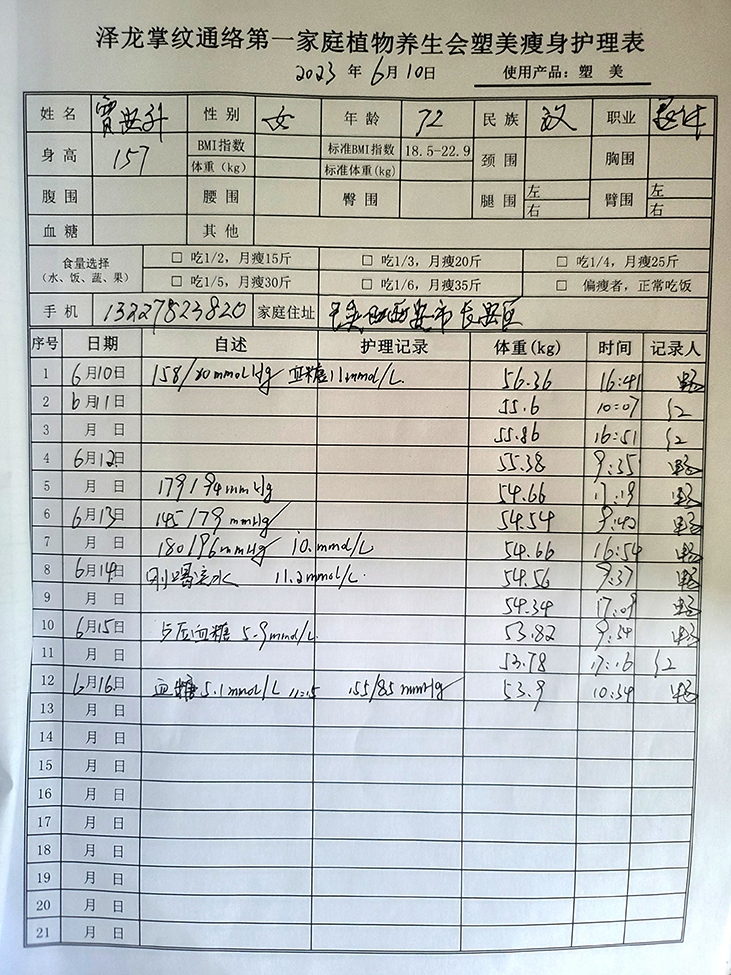 泽龙掌纹通络第一家庭植物养生会塑美瘦身护理表
2023 年 6月 10日 使用产品：塑 美
姓 名 性 别 女 年 龄 72 民 族 汉 职业
身 高 157 BMI指数 标准BMI指数 18.5-22.9 颈 围 胸围
体重（kg） 标准体重(kg)
腹 围 腰 围 臀 围 腿 围 左 右 臂围 左 右
血 糖 其 他
食量选择 □ 吃1/2，月瘦15斤 □ 吃1/3，月瘦20斤 □ 吃1/4，月瘦25斤
（水、饭、蔬、果） □ 吃1/5，月瘦30斤 □ 吃1/6，月瘦35斤 □ 偏瘦者，正常吃饭
手 机 13227823820 家庭住址 西安市长安区
序号 日期 自述 护理记录 体重(kg) 时间 记录人
1 6月10日 158/80mmolHg 血糖11mmol/L. 56.36 16:41
2 6月11日 55.6 10:07
3 月 日 55.86 16:51
4 6月12日 55.38 9:35
5 月 日 179/94mmHg 54.66 17:19
6 6月13日 145/79mmHg 54.54 9:42
7 月 日 180/96mmHg 10.mmol/L 54.66 16:54
8 6月14日 刚喝完水 11.2mmol/L. 54.56 9:37
9 月 日 54.34 17:09
10 6月15日 血糖 5.9mmol/L. 53.82 9:54
11 月 日 53.78 17:16
12 6月16日 血糖5.1mmol/L 155/85mmHg 53.9 10:34
13 月 日
14 月 日
15 月 日
16 月 日
17 月 日
18 月 日
19 月 日
20 月 日
21 月 日